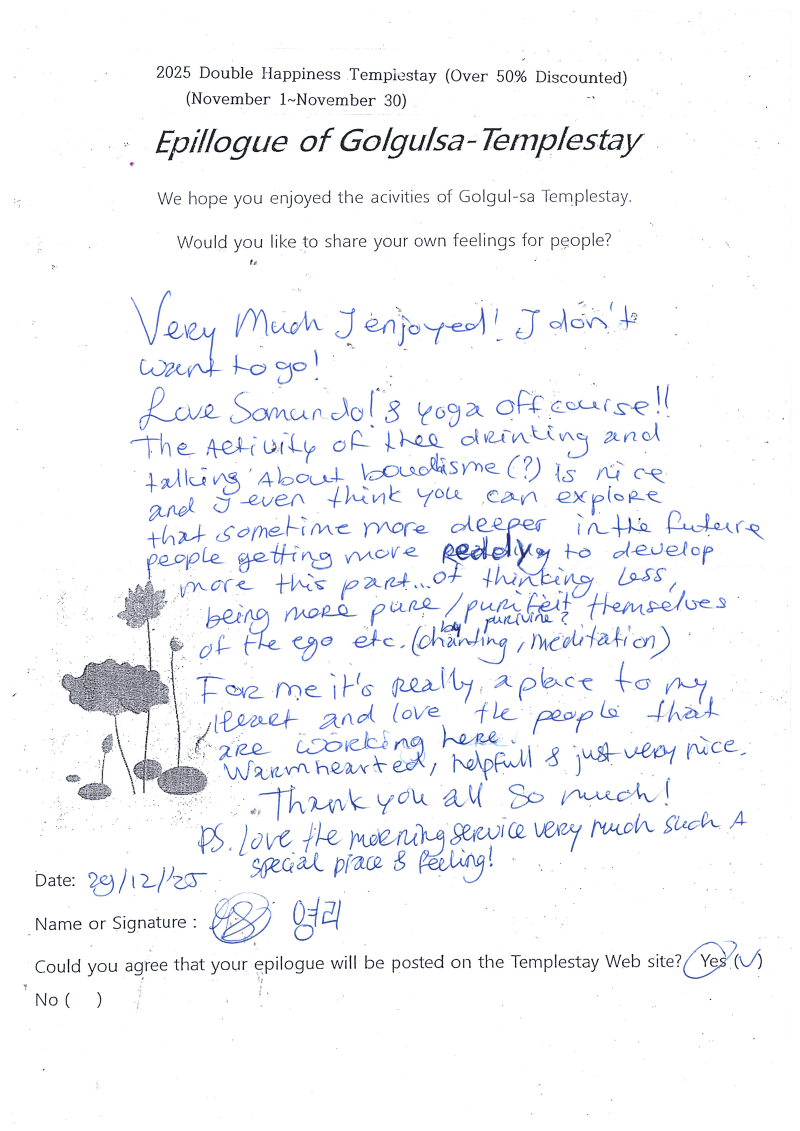 2025 Double Happiness Templestay (Over 50% Discounted)
(November 1~November 30)
Epillogue of Golgulsa-Templestay
We hope you enjoyed the acivities of Golgul-sa Templestay.
Would you like to share your own feelings for people?
Very Much I enjoyed! I don't
want to go!
Love Somundo! & yoga off course!!
The Activity of thee drinting and
talking About boudisme (?) Is nice
and I even think you can explore
that sometime more deeper in the future
people getting more to develop
more this part... of thinking less,
being more pure / purifeit themselves
purivine?
of the ego etc. (by chanting, meditation)
For me it's really a place to my
Heart and love the people that
are working here.
Warmhearted, helpfull & just very nice.
Thank you all so much!
PS. love the morning service very much such A
special place & feeling!
Date: 29/12/'25
Name or Signature : 영리
Could you agree that your epilogue will be posted on the Templestay Web site? Yes (✓)
No ( )